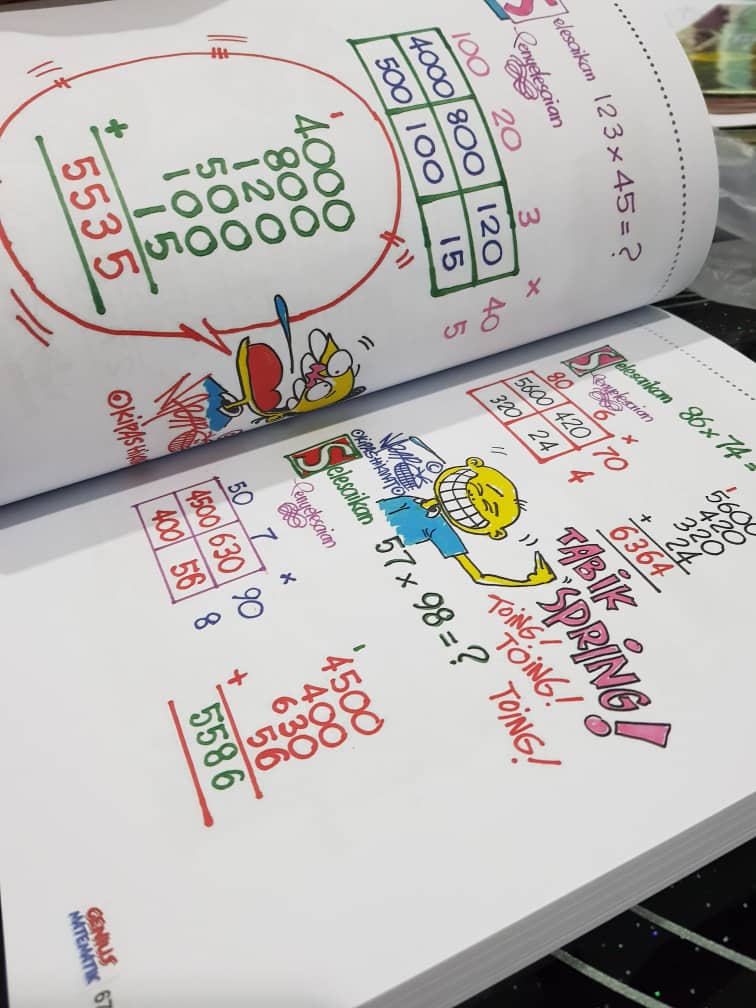 Selesaikan 123 × 45 = ?
Penyelesaian
100 20 3 ×
4000 800 120 40
500 100 15 5
1
4000
800
120
500
100
+ 15
5535
©KIPAS
Selesaikan 86 × 74 =
Penyelesaian
80 6 ×
5600 420 70
320 24 4
1
5600
420
320
+ 24
6364
TABIK
"SPRING!
TOING!
TOING!
TOING!
Selesaikan 57 × 98 = ?
Penyelesaian
50 7 ×
4500 630 90
400 56 8
1
4500
400
630
+ 56
5586
GENIUS
MATEMATIK 67